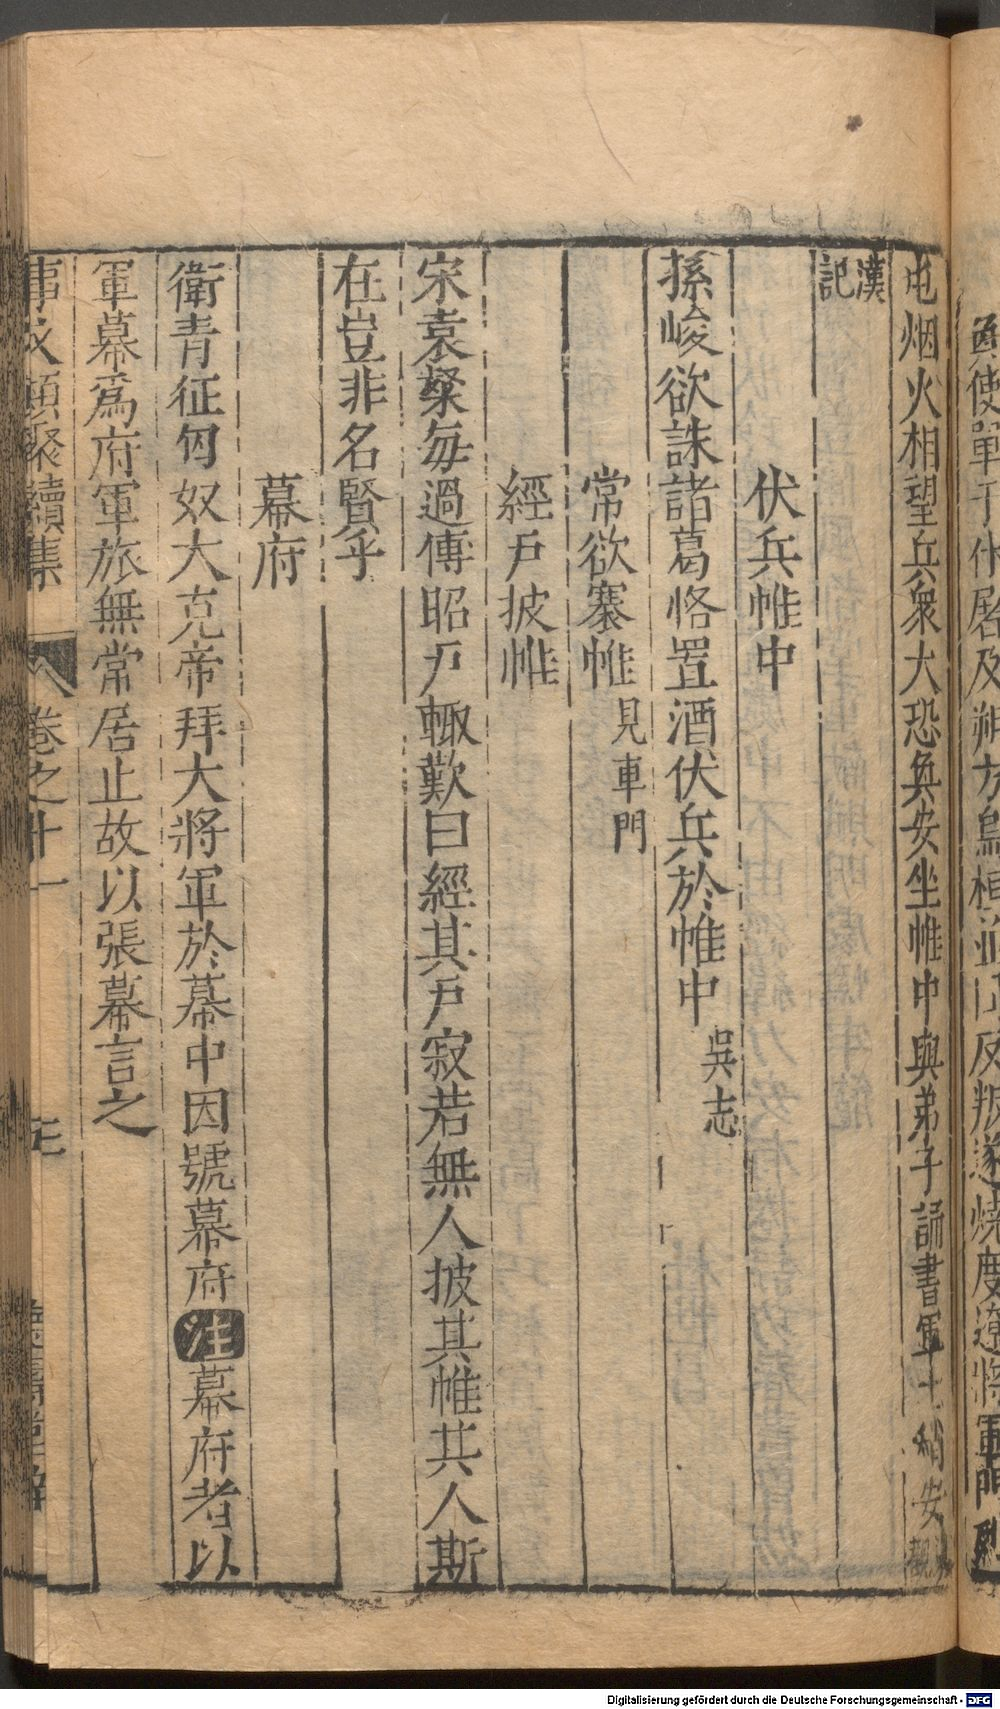 奐使單于什居及朔方烏桓並同反叛遂燒度遼將軍門
屯烟火相望兵衆大恐奐安坐帷中與弟子誦書軍士稍安東觀
漢記
伏兵帷中
孫峻欲誅諸葛恪置酒伏兵於帷中吳志
常欲褰帷見車門
經戶披帷
宋袁粲每過傅昭戶輙歎曰經其戶寂若無人披其帷其人斯
在豈非名賢乎
幕府
衛青征匈奴大克帝拜大將軍於幕中因號幕府注幕府者以
軍幕爲府軍旅無常居止故以張幕言之
事文類聚續集 卷之十一
Digitalisierung gefördert durch die Deutsche Forschungsgemeinschaft - DFG